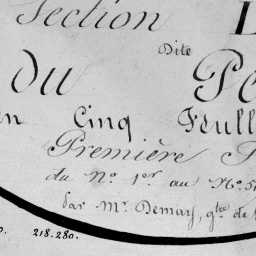 Section
Dite
DU
en Cinq Feuill
Première
du N.º 1.er au N.º
Par M.r Demay, g.tre de
218.280.